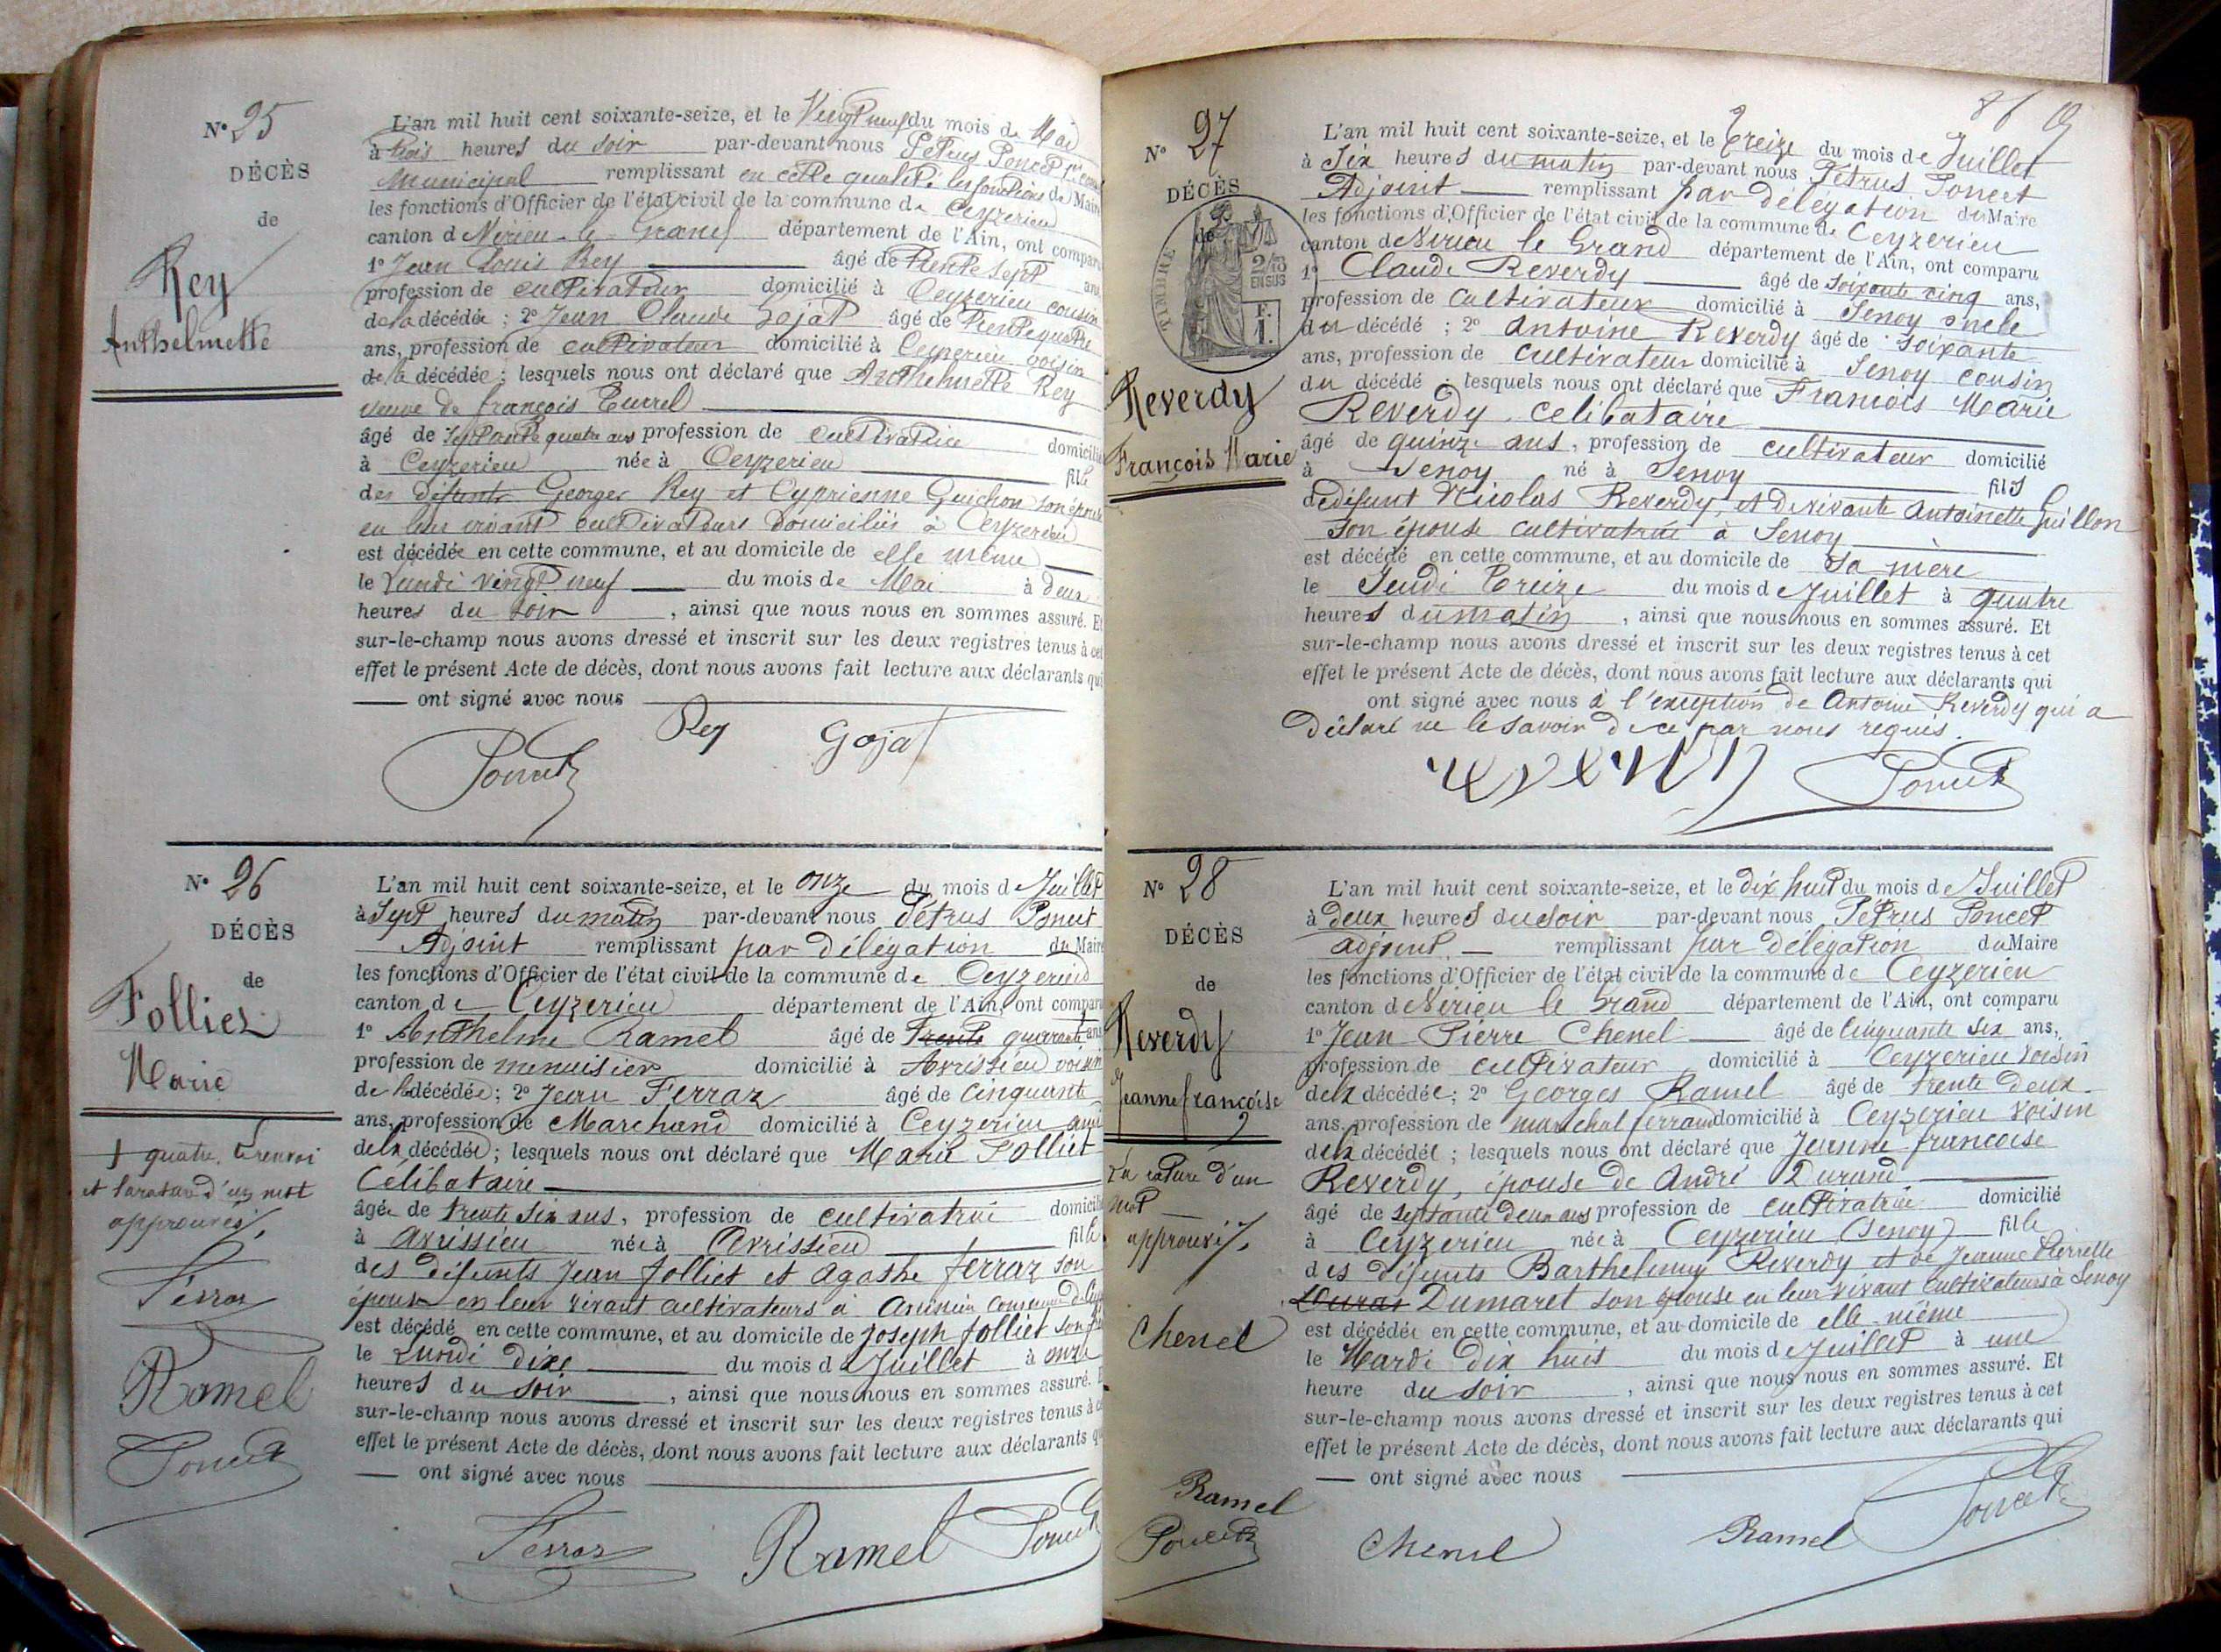 N° 25
DÉCÈS
de
Rey
Anthelmette
L'an mil huit cent soixante-seize, et le Vingt neuf du mois de Mai
à trois heures du soir par-devant nous Petrus Poncet
Municipal remplissant en cette qualité les fonctions de Maire
les fonctions d'Officier de l'état civil de la commune de Ceyzerieu
canton de Virieu-le-Grand département de l'Ain, ont comparu
1° Jean Louis Rey âgé de trente sept ans
profession de cultivateur domicilié à Ceyzerieu cousin
de la décédée ; 2° Jean Claude Gojat âgé de trente quatre
ans, profession de cultivateur domicilié à Ceyzerieu voisin
de la décédée ; lesquels nous ont déclaré que Anthelmette Rey
veuve de françois Turrel
âgé de septante quatre ans profession de cultivatrice domicilié
à Ceyzerieu née à Ceyzerieu fille
des défunts Georges Rey et Cyprienne Guichon son épouse
en leur vivant cultivateurs domiciliés à Ceyzerieu
est décédée en cette commune, et au domicile de elle même
le Lundi vingt neuf du mois de Mai à deux
heures du soir , ainsi que nous nous en sommes assuré. Et
sur-le-champ nous avons dressé et inscrit sur les deux registres tenus à cet
effet le présent Acte de décès, dont nous avons fait lecture aux déclarants qui
ont signé avec nous
Rey Gojat
Poncet
N° 26
DÉCÈS
de
Folliet
Marie
+ quatre. Le renvoi
et la rature d'un mot
approuvés/.
Ferraz
Ramel
Poncet
L'an mil huit cent soixante-seize, et le onze du mois de Juillet
à Sept heures du matin par-devant nous Pétrus Poncet
Adjoint remplissant par délégation du Maire
les fonctions d'Officier de l'état civil de la commune de Ceyzerieu
canton de Ceyzerieu département de l'Ain, ont comparu
1° Anthelme Ramel âgé de trente quarante ans
profession de menuisier domicilié à Avrissieu voisin
de la décédée ; 2° Jean Ferraz âgé de Cinquante
ans, profession de Marchand domicilié à Ceyzerieu ami
de la décédée ; lesquels nous ont déclaré que Marie Folliet
Célibataire
âgée de trente six ans, profession de cultivatrice domicilié
à avrissieu née à Avrissieu fille
des défunts Jean folliet et agathe ferraz son
épouse en leur vivant cultivateurs à
est décédé en cette commune, et au domicile de joseph folliet son
le Lundi dix du mois de Juillet à onze
heures du soir , ainsi que nous nous en sommes assuré. Et
sur-le-champ nous avons dressé et inscrit sur les deux registres tenus à cet
effet le présent Acte de décès, dont nous avons fait lecture aux déclarants qui
ont signé avec nous
Ferraz Ramel Poncet
86
N° 27
DÉCÈS
de
TIMBRE
2/10
EN SUS
F.
1.
Reverdy
François Marie
L'an mil huit cent soixante-seize, et le Treize du mois de Juillet
à Six heures du matin par-devant nous Pétrus Poncet
Adjoint remplissant par délégation du Maire
les fonctions d'Officier de l'état civil de la commune de Ceyzerieu
canton de Virieu le Grand département de l'Ain, ont comparu
1° Claude Reverdy âgé de soixante cinq ans,
profession de cultivateur domicilié à Senoy oncle
du décédé ; 2° Antoine Reverdy âgé de soixante
ans, profession de cultivateur domicilié à Senoy cousin
du décédé ; lesquels nous ont déclaré que François Marie
Reverdy célibataire
âgé de quinze ans, profession de cultivateur domicilié
à Senoy né à Senoy fils
de défunt Nicolas Reverdy, et de vivante Antoinette Guillon
son épouse cultivatrice à Senoy
est décédé en cette commune, et au domicile de sa mère
le Jeudi treize du mois de Juillet à quatre
heures du matin , ainsi que nous nous en sommes assuré. Et
sur-le-champ nous avons dressé et inscrit sur les deux registres tenus à cet
effet le présent Acte de décès, dont nous avons fait lecture aux déclarants qui
ont signé avec nous à l'exception de Antoine Reverdy qui a
déclaré ne le savoir de ce par nous requis.
Poncet
N° 28
DÉCÈS
de
Reverdy
Jeanne françoise
La rature d'un
mot
approuvé/.
Chenel
Ramel
Poncet
L'an mil huit cent soixante-seize, et le dix huit du mois de Juillet
à deux heures du soir par-devant nous Petrus Poncet
adjoint. remplissant par délégation du Maire
les fonctions d'Officier de l'état civil de la commune de Ceyzerieu
canton de Virieu le Grand département de l'Ain, ont comparu
1° Jean Pierre Chenel âgé de Cinquante six ans,
profession de cultivateur domicilié à Ceyzerieu voisin
de la décédée ; 2° Georges Ramel âgé de trente deux
ans, profession de maréchal ferrand domicilié à Ceyzerieu voisin
de la décédée ; lesquels nous ont déclaré que Jeanne francoise
Reverdy, épouse de André Durand
âgé de septante deux ans profession de cultivatrice domicilié
à Ceyzerieu née à Ceyzerieu (Senoy) fille
des défunts Barthelemy Reverdy et de Jeanne Pierrette
Duras Dumaret son épouse en leur vivant cultivateurs à Senoy
est décédée en cette commune, et au domicile de elle-même
le Mardi dix huit du mois de Juillet à une
heure du soir , ainsi que nous nous en sommes assuré. Et
sur-le-champ nous avons dressé et inscrit sur les deux registres tenus à cet
effet le présent Acte de décès, dont nous avons fait lecture aux déclarants qui
ont signé avec nous
Chenel Ramel Poncet